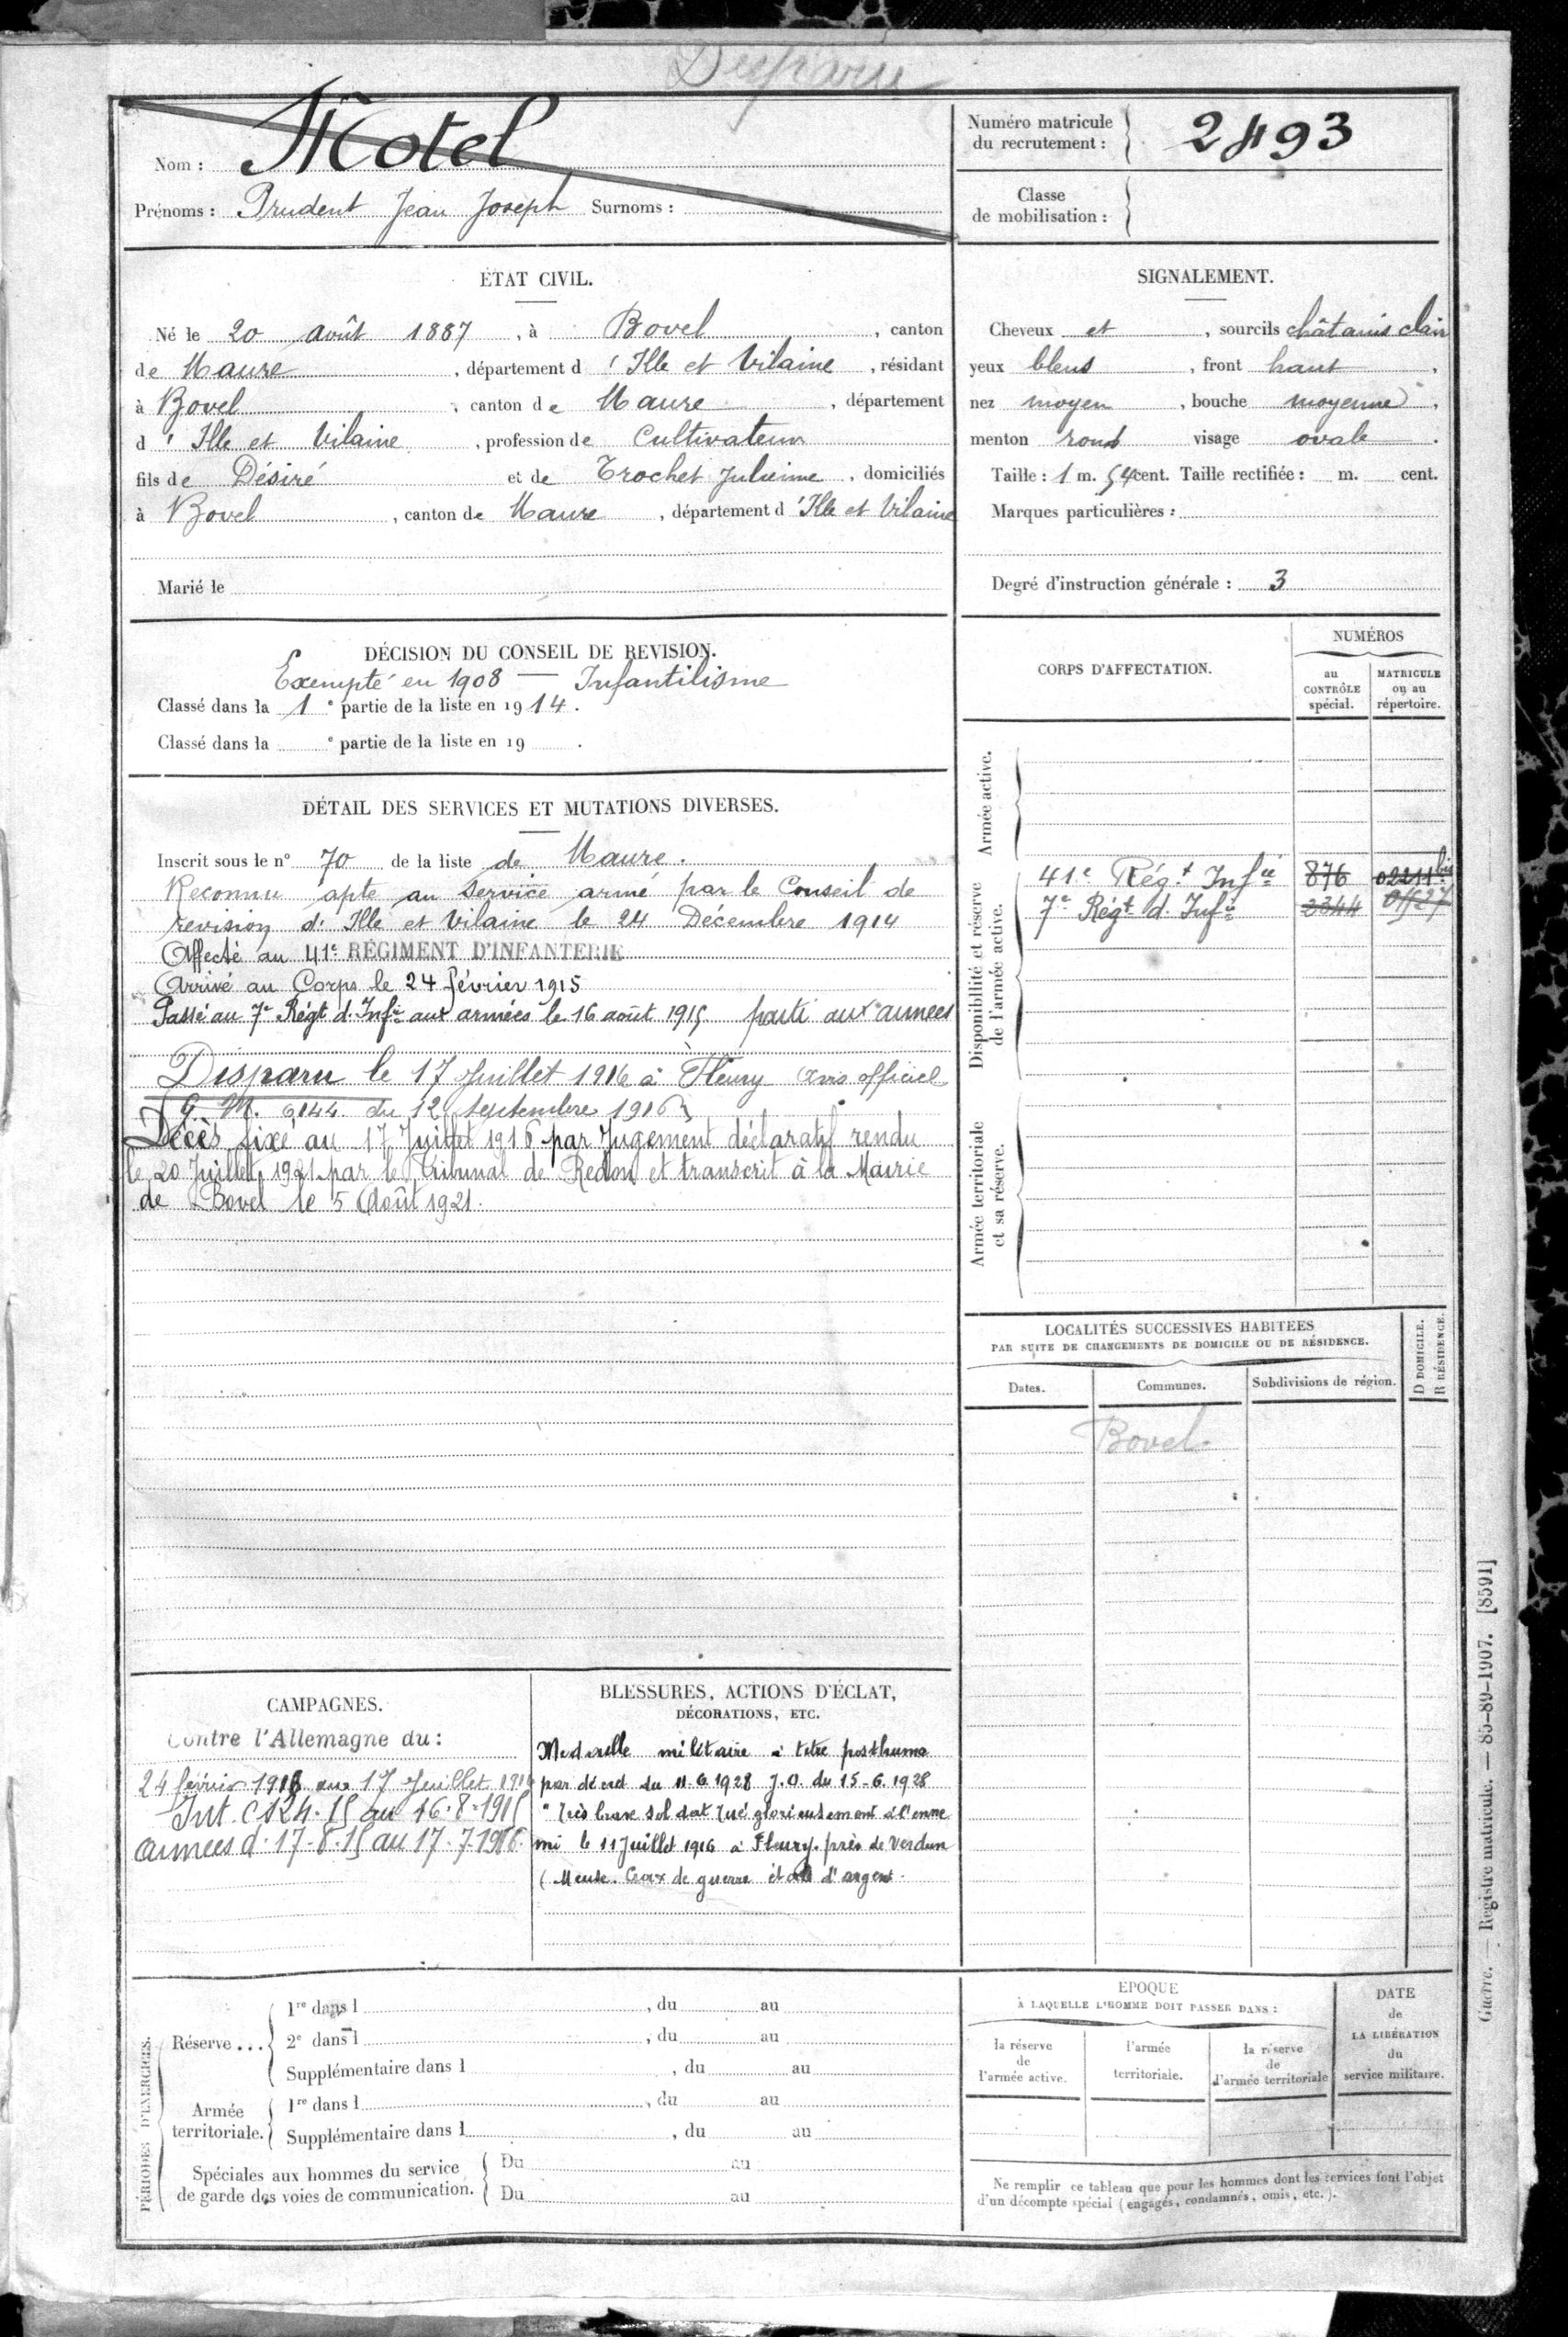 Disparu
Nom : Motel
Prénoms : Prudent Jean Joseph Surnoms :
Numéro matricule du recrutement : 2493
Classe de mobilisation :
ÉTAT CIVIL.
Né le 20 août 1887, à Bovel, canton
de Maure, département d'Ille et Vilaine, résidant
à Bovel, canton de Maure, département
d'Ille et Vilaine, profession de Cultivateur
fils de Désiré et de Trochet Julienne, domiciliés
à Bovel, canton de Maure, département d'Ille et Vilaine
Marié le
SIGNALEMENT.
Cheveux et, sourcils châtains clair
yeux bleus, front haut,
nez moyen, bouche moyenne,
menton rond visage ovale.
Taille : 1 m. 54 cent. Taille rectifiée : m. cent.
Marques particulières :
Degré d'instruction générale : 3
DÉCISION DU CONSEIL DE REVISION.
Exempté en 1908 — Infantilisme
Classé dans la 1e partie de la liste en 1914.
Classé dans la e partie de la liste en 19 .
DÉTAIL DES SERVICES ET MUTATIONS DIVERSES.
Inscrit sous le n° 70 de la liste de Maure.
Reconnu apte au service armé par le Conseil de
revision d'Ille et Vilaine le 24 Décembre 1914
Affecté au 41e RÉGIMENT D'INFANTERIE
Arrivé au Corps le 24 février 1915
Passé au 7e Régt d'Infie aux armées le 16 août 1915 parti aux armées
Disparu le 17 Juillet 1916 à Fleury avis officiel
G. M. 6144 du 12 septembre 1916
Décès fixé au 17 Juillet 1916 par Jugement déclaratif rendu
le 20 Juillet 1921 par le Tribunal de Redon et transcrit à la Mairie
de Bovel le 5 Août 1921.
CORPS D'AFFECTATION.
NUMÉROS
au CONTRÔLE spécial.
MATRICULE ou au répertoire.
Armée active.
Disponibilité et réserve de l'armée active.
41e Régt Infie 876 02211 bis
7e Régt d'Infie 2344
Armée territoriale et sa réserve.
LOCALITÉS SUCCESSIVES HABITEES
PAR SUITE DE CHANGEMENTS DE DOMICILE OU DE RÉSIDENCE.
Dates. Communes. Subdivisions de région. D DOMICILE. R RÉSIDENCE.
Bovel
CAMPAGNES.
Contre l'Allemagne du :
24 février 1915 au 17 Juillet 1916
Int. C 124.15 au 16.8.1915
Armées d. 17.8.15 au 17.7.1916.
BLESSURES, ACTIONS D'ÉCLAT,
DÉCORATIONS, ETC.
Medaille militaire à titre posthume
par décret du 11.6.1928 J.O. du 15-6.1928
" Très brave soldat tué glorieusement à l'enne
mi le 11 Juillet 1916 à Fleury près de Verdun
(Meuse. Croix de guerre étoile d'argent.
PÉRIODES D'EXERCICES.
Réserve...
1re dans l , du au
2e dans l , du au
Supplémentaire dans l , du au
Armée territoriale.
1re dans l , du au
Supplémentaire dans l , du au
Spéciales aux hommes du service
de garde des voies de communication.
Du au
Du au
EPOQUE
À LAQUELLE L'HOMME DOIT PASSER DANS :
la réserve de l'armée active.
l'armée territoriale.
la réserve de l'armée territoriale
DATE de LA LIBÉRATION du service militaire.
Ne remplir ce tableau que pour les hommes dont les services font l'objet
d'un décompte spécial (engagés, condamnés, omis, etc.).
Guerre. — Registre matricule. — 85-89-1907. [8591]